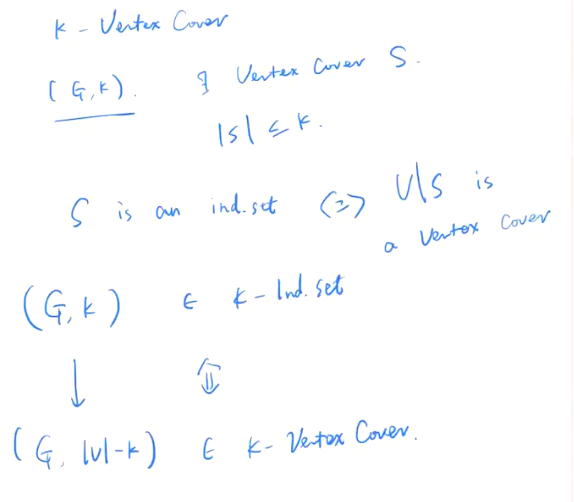 k - Vertex Cover
(G,k). ∃ Vertex Cover S.
|S| ≤ k.
S is an ind.set <=> V\S is
a Vertex Cover
(G,k) ∈ k-Ind.set
↓ ⇕
(G, |V|-k) ∈ k-Vertex Cover.